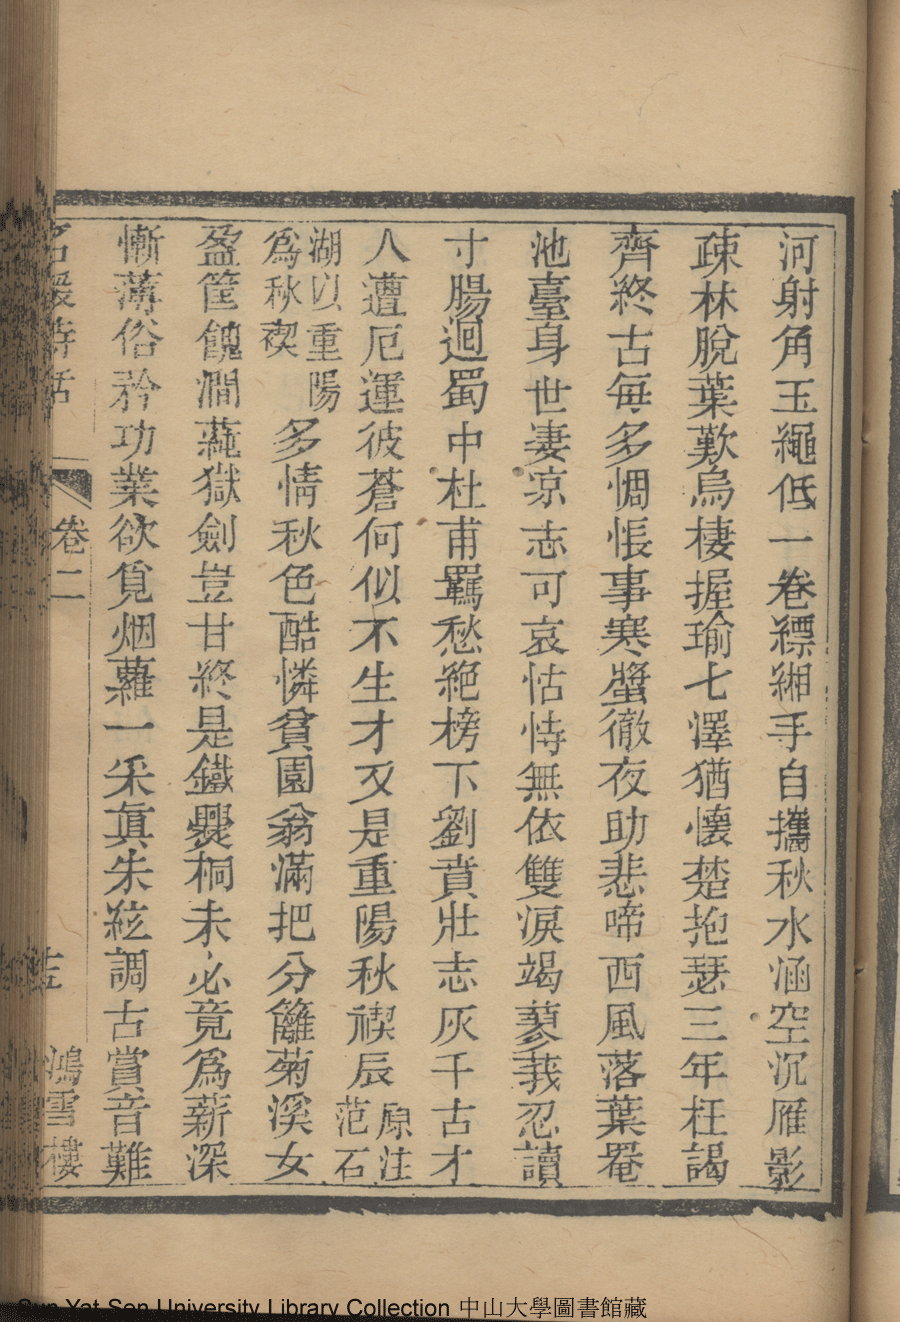 河射角玉繩低一卷縹緗手自攜秋水涵空沉雁影
疎林脫葉歎烏棲握瑜七澤猶懷楚抱瑟三年枉謁
齊終古每多惆悵事寒螿徹夜助悲啼西風落葉罨
池臺身世凄凉志可哀怙恃無依雙淚竭蓼莪忍讀
寸腸迴蜀中杜甫羈愁絕榜下劉蕡壯志灰千古才
人遭厄運彼蒼何似不生才又是重陽秋禊辰原注范石
湖以重陽爲秋禊多情秋色酷憐貧園翁滿把分籬菊溪女
盈筐餽澗蒓獄劍豈甘終是鐵爨桐未必竟爲薪深
慚薄俗矜功業欲覓烟蘿一采真朱絃調古賞音難
名媛詩話
卷二
鴻雪樓
Sun Yat Sen University Library Collection 中山大學圖書館藏